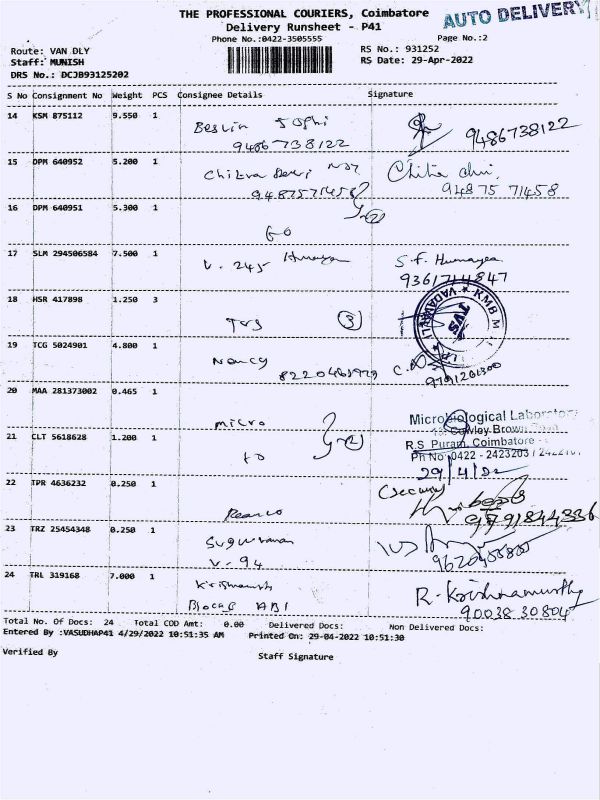 THE PROFESSIONAL COURIERS, Coimbatore
AUTO DELIVERY
Delivery Runsheet - P41
Phone No.:0422-3505555
Page No.:2
Route: VAN DLY
RS No.: 931252
Staff: MUNISH
RS Date: 29-Apr-2022
DRS No.: DCJB93125202
S No Consignment No Weight PCS Consignee Details Signature
14 KSM 875112 9.550 1
Beslin Sophi
9486738122 9486738122
15 OPM 640952 5.200 1
Chitra Devi Chitra devi.
9487571458 94875 71458
16 OPM 640951 5.300 1
to
17 SLM 294506584 7.500 1
V. 245 S.f. Humayea
9361744847
18 HSR 417898 1.250 3
TVS 3 TVS KMB VADAVALLI
19 TCG 5024901 4.800 1
Nancy
9791201300
20 MAA 281373002 0.465 1
micro 2 Microbiological Laboratory
Cowley Brown Road
21 CLT 5618628 1.200 1
to R.S. Puram, Coimbatore -
Ph No 0422 - 2423203 /
29/4/22
22 TPR 4636232 0.250 1
(Security
9791844336
23 TRZ 25454348 0.250 1
Sugumaran
V. 94
24 TRL 319168 7.000 1
Block C AB1 R. Krishnamurthy
90038 30804
Total No. Of Docs: 24 Total COD Amt: 0.00 Delivered Docs: Non Delivered Docs:
Entered By :VASUDHAP41 4/29/2022 10:51:35 AM Printed On: 29-04-2022 10:51:30
Verified By
Staff Signature